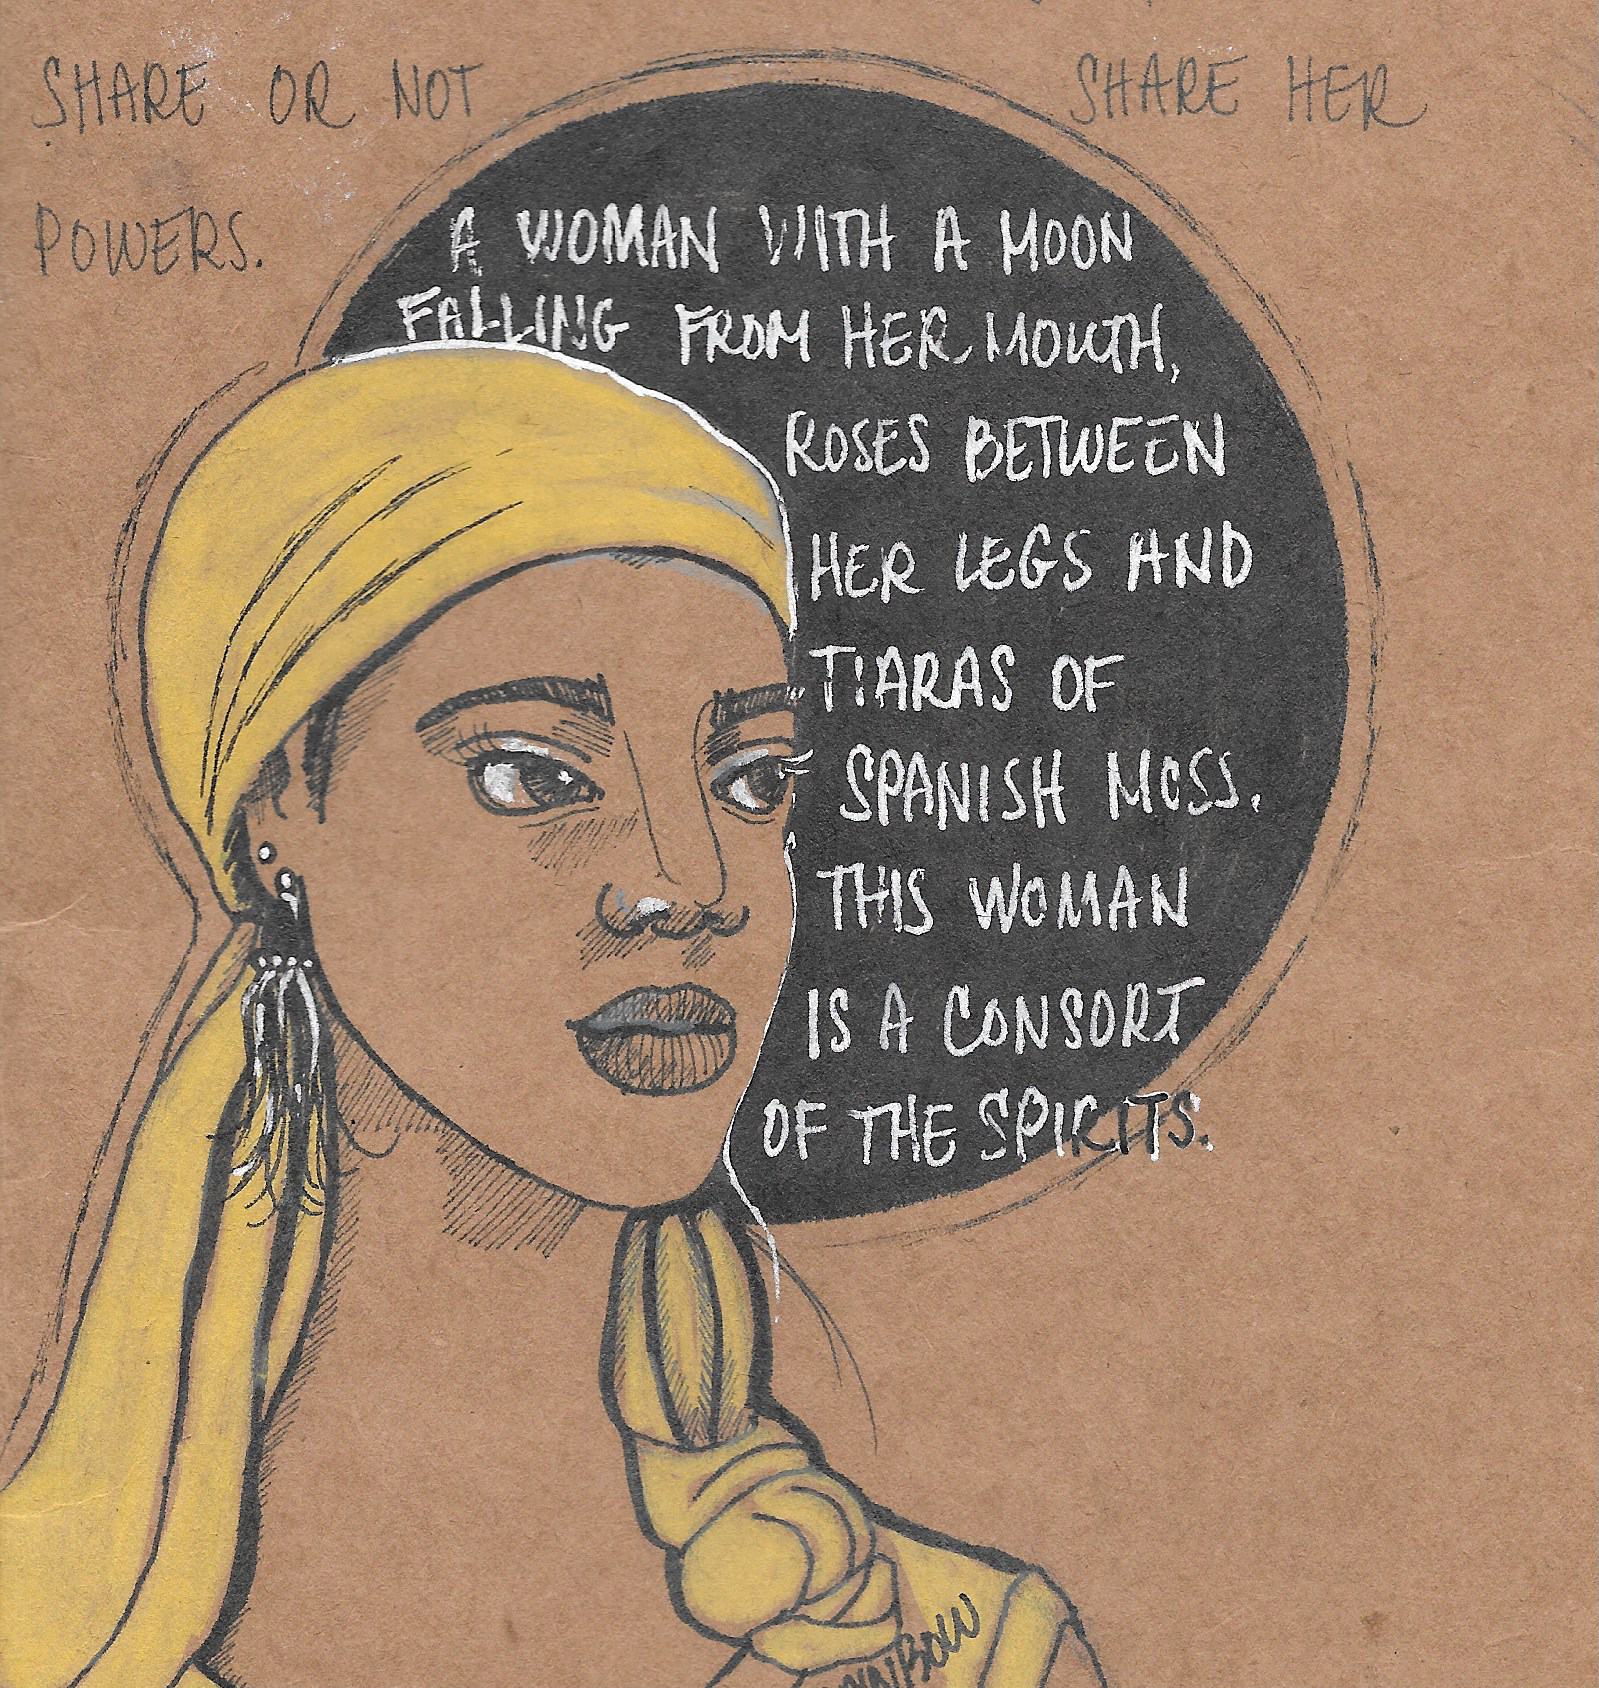 SHARE OR NOT SHARE HER
POWERS.
A WOMAN WITH A MOON
FALLING FROM HER MOUTH,
ROSES BETWEEN
HER LEGS AND
TIARAS OF
SPANISH MOSS.
THIS WOMAN
IS A CONSORT
OF THE SPIRITS.